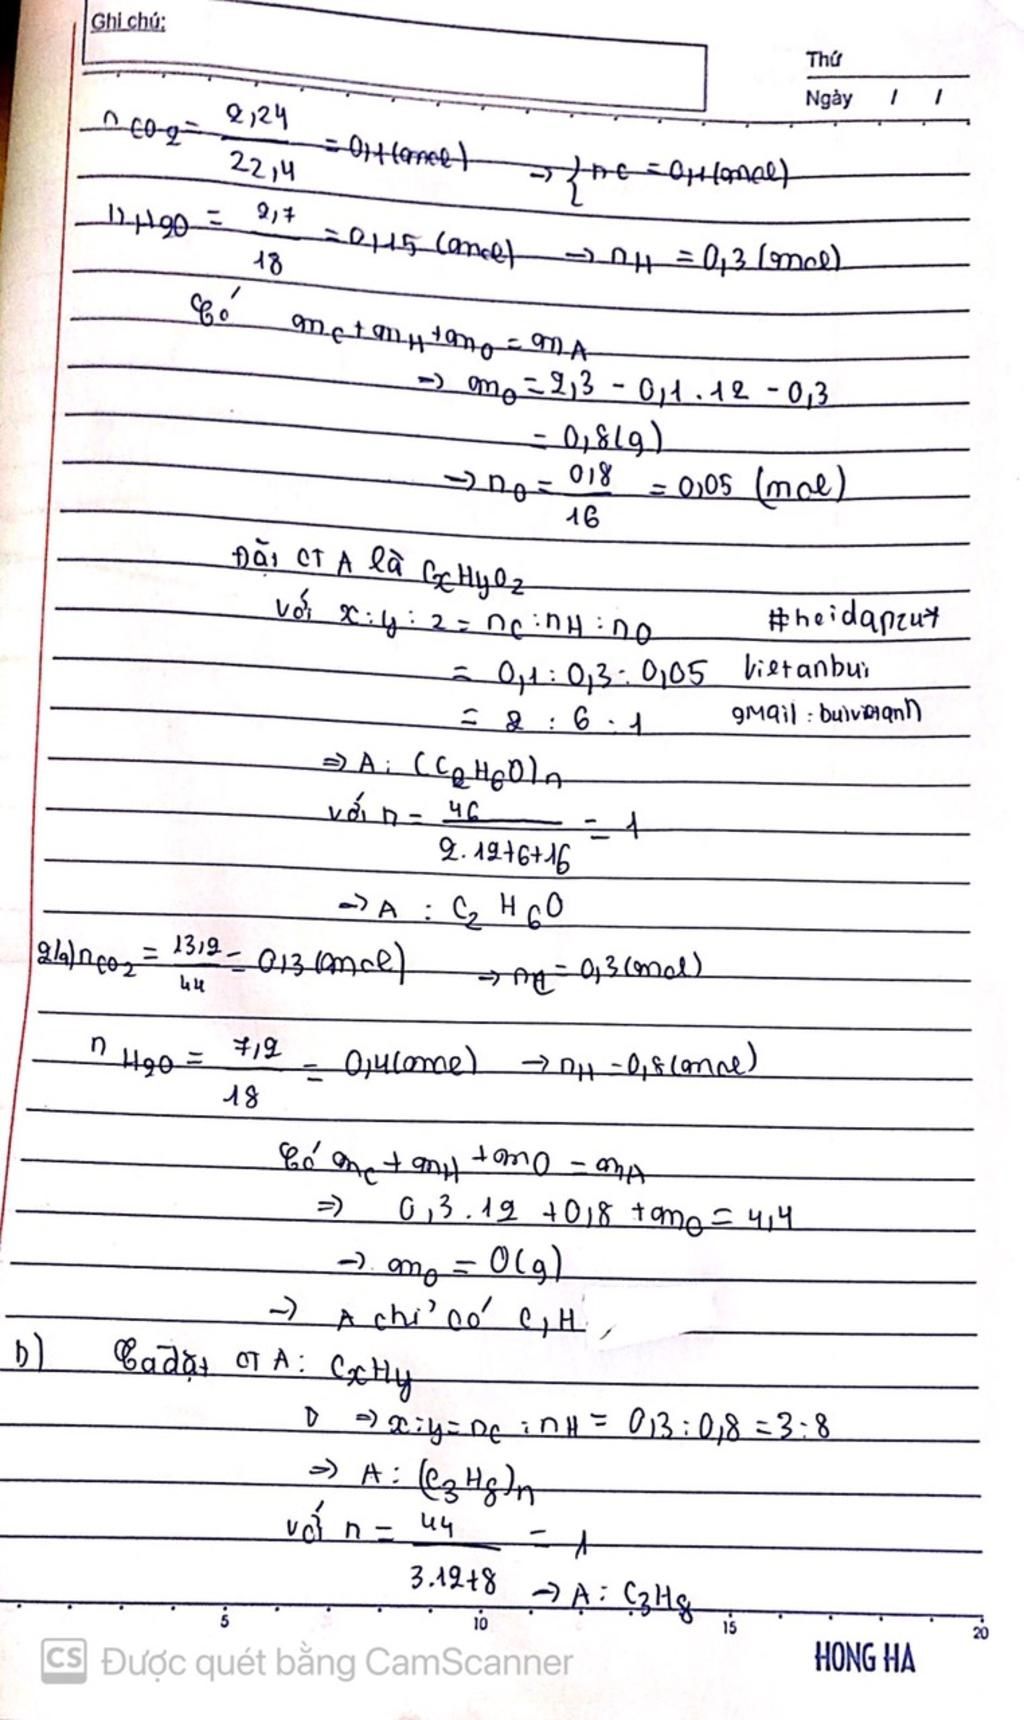 Ghi chú:
Thứ
Ngày / /
nCO2 = 2,24/22,4 = 0,1 (mol) → { nC = 0,1 (mol)
nH2O = 2,7/18 = 0,15 (mol) → nH = 0,3 (mol)
Có mC + mH + mO = mA
→ mO = 2,3 - 0,1 . 12 - 0,3
= 0,8 (g)
→ nO = 0,8/16 = 0,05 (mol)
Đặt CT A là CxHyOz
với x : y : z = nC : nH : nO
#hoidapzuy
= 0,1 : 0,3 : 0,05
vietanbui
= 2 : 6 : 1
gmail :
⇒ A : (C2H6O)n
với n = 46/2.12+6+16 = 1
→ A : C2H6O
2)a) nCO2 = 13,2/44 = 0,3 (mol) → nC = 0,3 (mol)
nH2O = 7,2/18 = 0,4 (mol) → nH = 0,8 (mol)
Có mC + mH + mO = mA
⇒ 0,3 . 12 + 0,8 + mO = 4,4
→ mO = 0 (g)
→ A chỉ có C, H
b) Ta đặt CT A : CxHy
⇒ x : y = nC : nH = 0,3 : 0,8 = 3 : 8
⇒ A : (C3H8)n
với n = 44/3.12+8 = 1
→ A : C3H8
5 10 15 20
CS Được quét bằng CamScanner
HONG HA